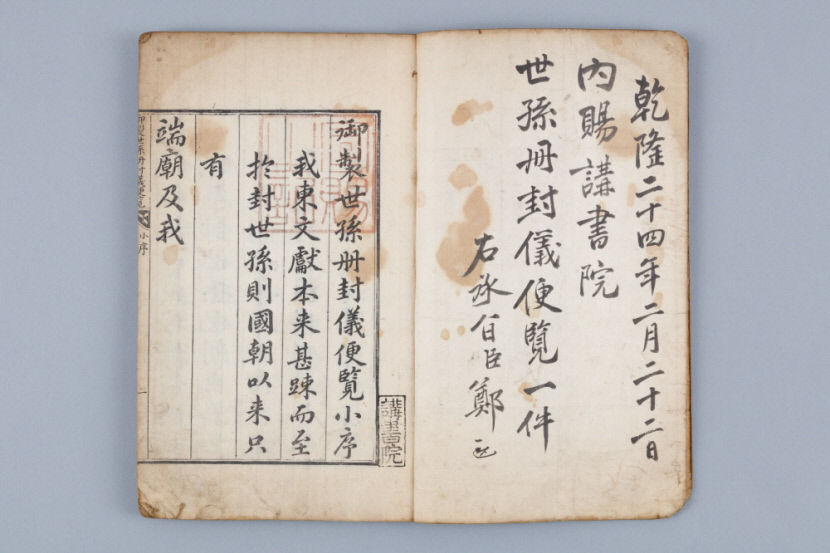 乾隆二十四年二月二十二日
內賜講書院
世孫冊封儀便覽一件
右承旨臣鄭
御製世孫冊封儀便覽小序
我東文獻本来甚踈而至
於封世孫則國朝以来只
有
端廟及我
御製世孫冊封儀便覽
小序
一
講書院